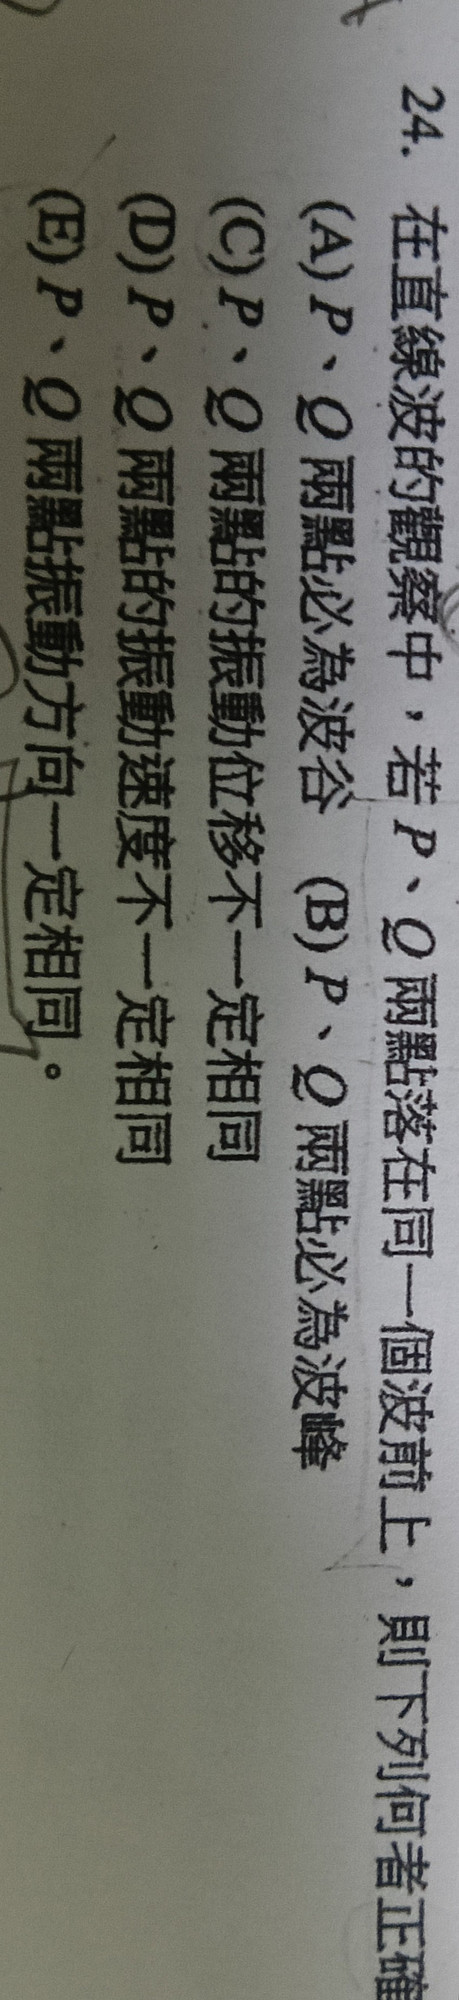 24. 在直線波的觀察中，若 P、Q 兩點落在同一個波前上，則下列何者正確
(A) P、Q 兩點必為波谷 (B) P、Q 兩點必為波峰
(C) P、Q 兩點的振動位移不一定相同
(D) P、Q 兩點的振動速度不一定相同
(E) P、Q 兩點振動方向一定相同。